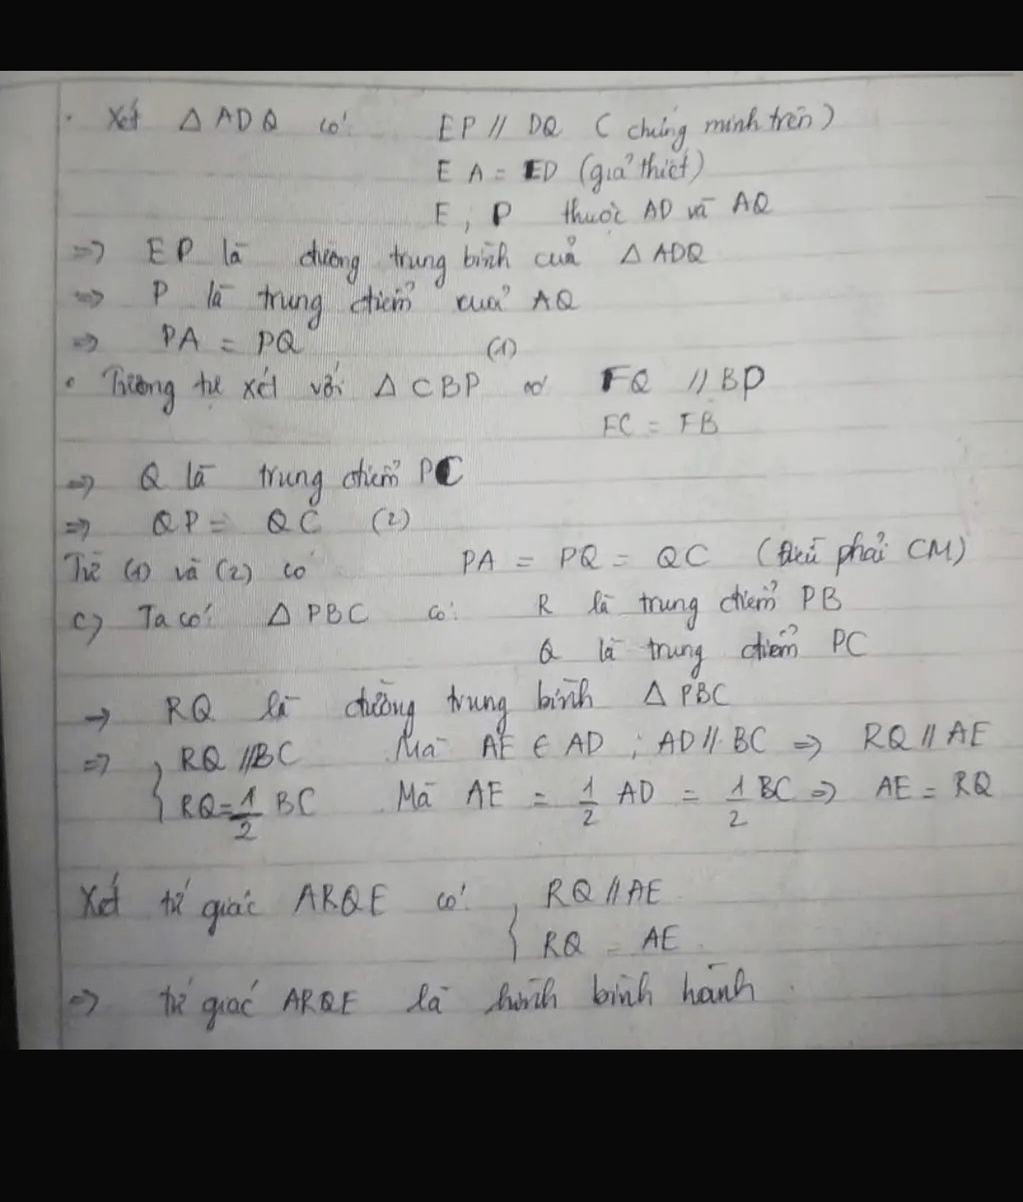 . Xét △ ADQ có: EP // DQ ( chứng minh trên )
EA = ED (giả thiết)
E, P thuộc AD và AQ
=> EP là đường trung bình của △ ADQ
=> P là trung điểm của AQ
=> PA = PQ (1)
• Tương tự xét với △ CBP có FQ // BP
FC = FB
=> Q là trung điểm PC
=> QP = QC (2)
Từ (1) và (2) có PA = PQ = QC (Điều phải CM)
c) Ta có: △ PBC có: R là trung điểm PB
Q là trung điểm PC
→ RQ là đường trung bình △ PBC
=> { RQ // BC Mà AE ∈ AD ; AD // BC => RQ // AE
RQ = 1/2 BC Mà AE = 1/2 AD = 1/2 BC => AE = RQ
Xét tứ giác ARQE có: { RQ // AE
RQ = AE.
=> tứ giác ARQE là hình bình hành.